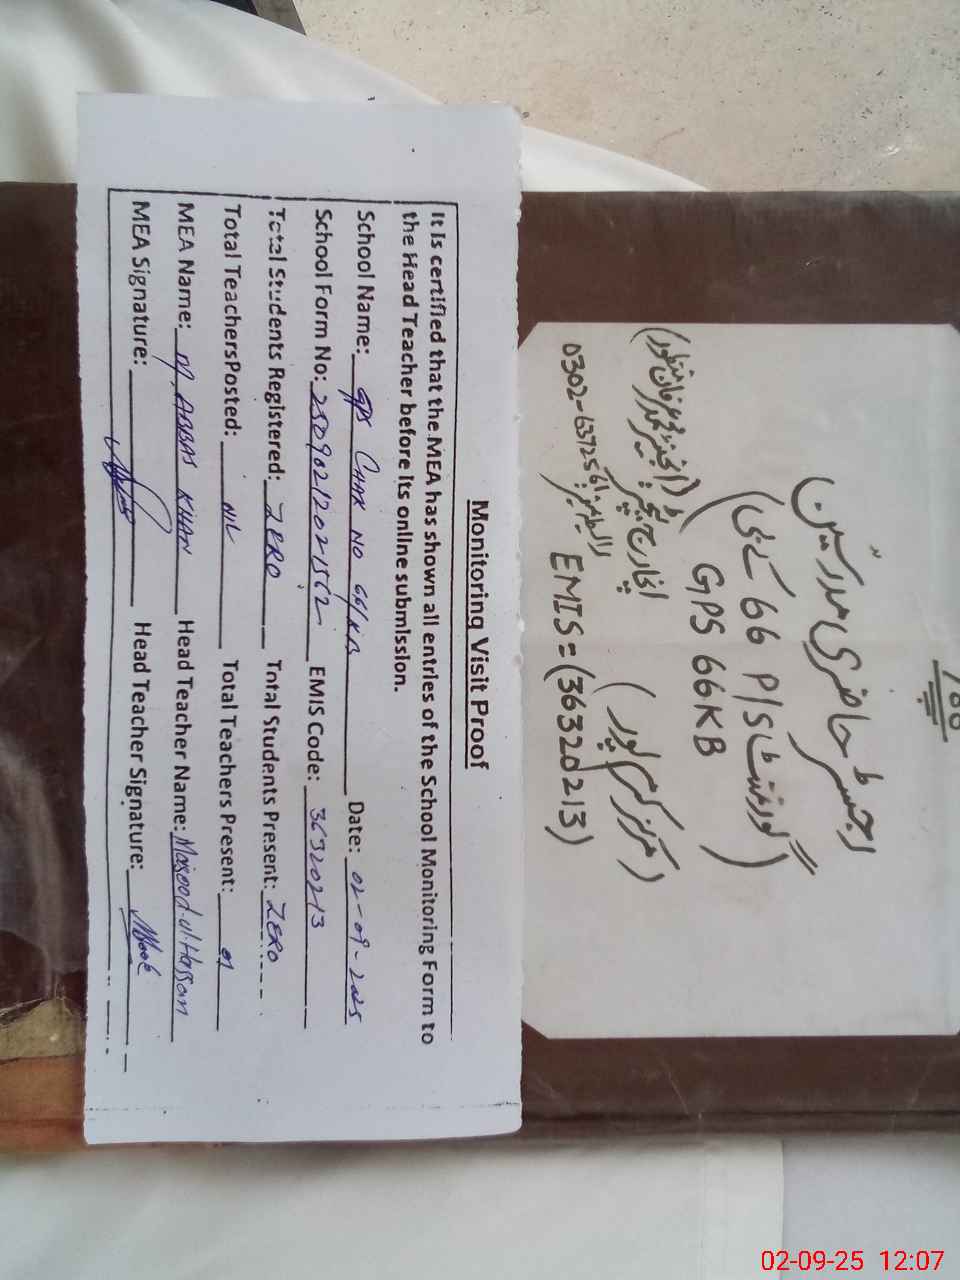 Monitoring Visit Proof
It is certified that the MEA has shown all entries of the School Monitoring Form to
the Head Teacher before its online submission.
School Name: GPS Chak No 66/KB Date: 02-09-2025
School Form No: EMIS Code: 36320213
Total Students Registered: ZERO Total Students Present: ZERO
Total TeachersPosted: NIL Total Teachers Present: 01
MEA Name: M. ABBAS KHAN Head Teacher Name: Masood-ul-Hassan
MEA Signature: Head Teacher Signature:
786
رجسٹر حاضری مدرسین
گورنمنٹ P/S 66 کے بی
GPS 66KB
(مرکز کرم پور)
EMIS=(36320213)
02-09-25 12:07